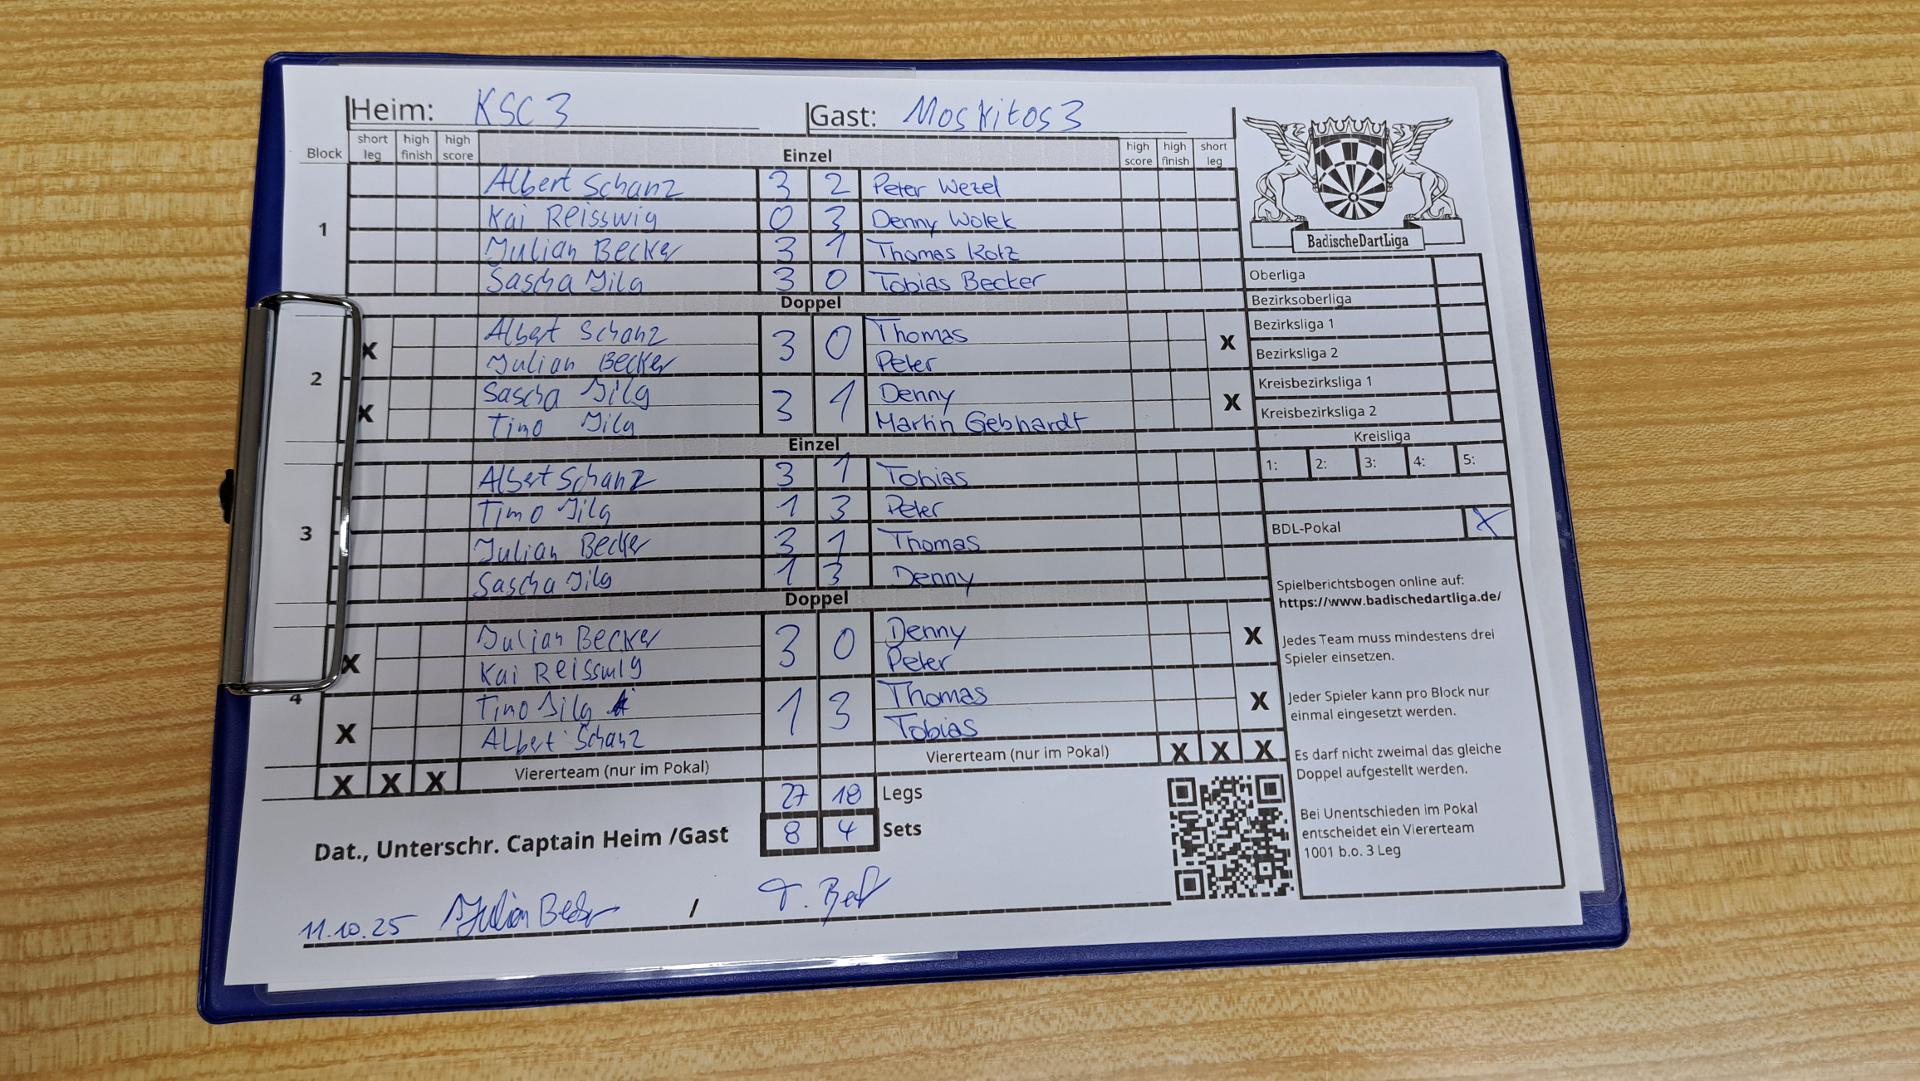 Heim: KSC 3 Gast: Moskitos 3
Block short leg high finish high score Einzel high score high finish short leg
1
Albert Schanz 3 2 Peter Wezel
Kai Reisswig 0 3 Denny Wolek
Julian Becker 3 1 Thomas Kotz
Sascha Jilg 3 0 Tobias Becker
Doppel
2
X Albert Schanz 3 0 Thomas X
Julian Becker Peter
X Sascha Jilg 3 1 Denny X
Timo Jilg Martin Gebhardt
Einzel
3
Albert Schanz 3 1 Tobias
Timo Jilg 1 3 Peter
Julian Becker 3 1 Thomas
Sascha Jilg 1 3 Denny
Doppel
4
X Julian Becker 3 0 Denny X
Kai Reisswig Peter
X Timo Jilg 1 3 Thomas X
Albert Schanz Tobias
X X X Viererteam (nur im Pokal) Viererteam (nur im Pokal) X X X
27 18 Legs
8 4 Sets
Dat., Unterschr. Captain Heim /Gast
11.10.25 Julian Becker / T. Beck
BadischeDartLiga
Oberliga
Bezirksoberliga
Bezirksliga 1
Bezirksliga 2
Kreisbezirksliga 1
Kreisbezirksliga 2
Kreisliga
1: 2: 3: 4: 5:
BDL-Pokal X
Spielberichtsbogen online auf:
https://www.badischedartliga.de/
Jedes Team muss mindestens drei
Spieler einsetzen.
Jeder Spieler kann pro Block nur
einmal eingesetzt werden.
Es darf nicht zweimal das gleiche
Doppel aufgestellt werden.
Bei Unentschieden im Pokal
entscheidet ein Viererteam
1001 b.o. 3 Leg